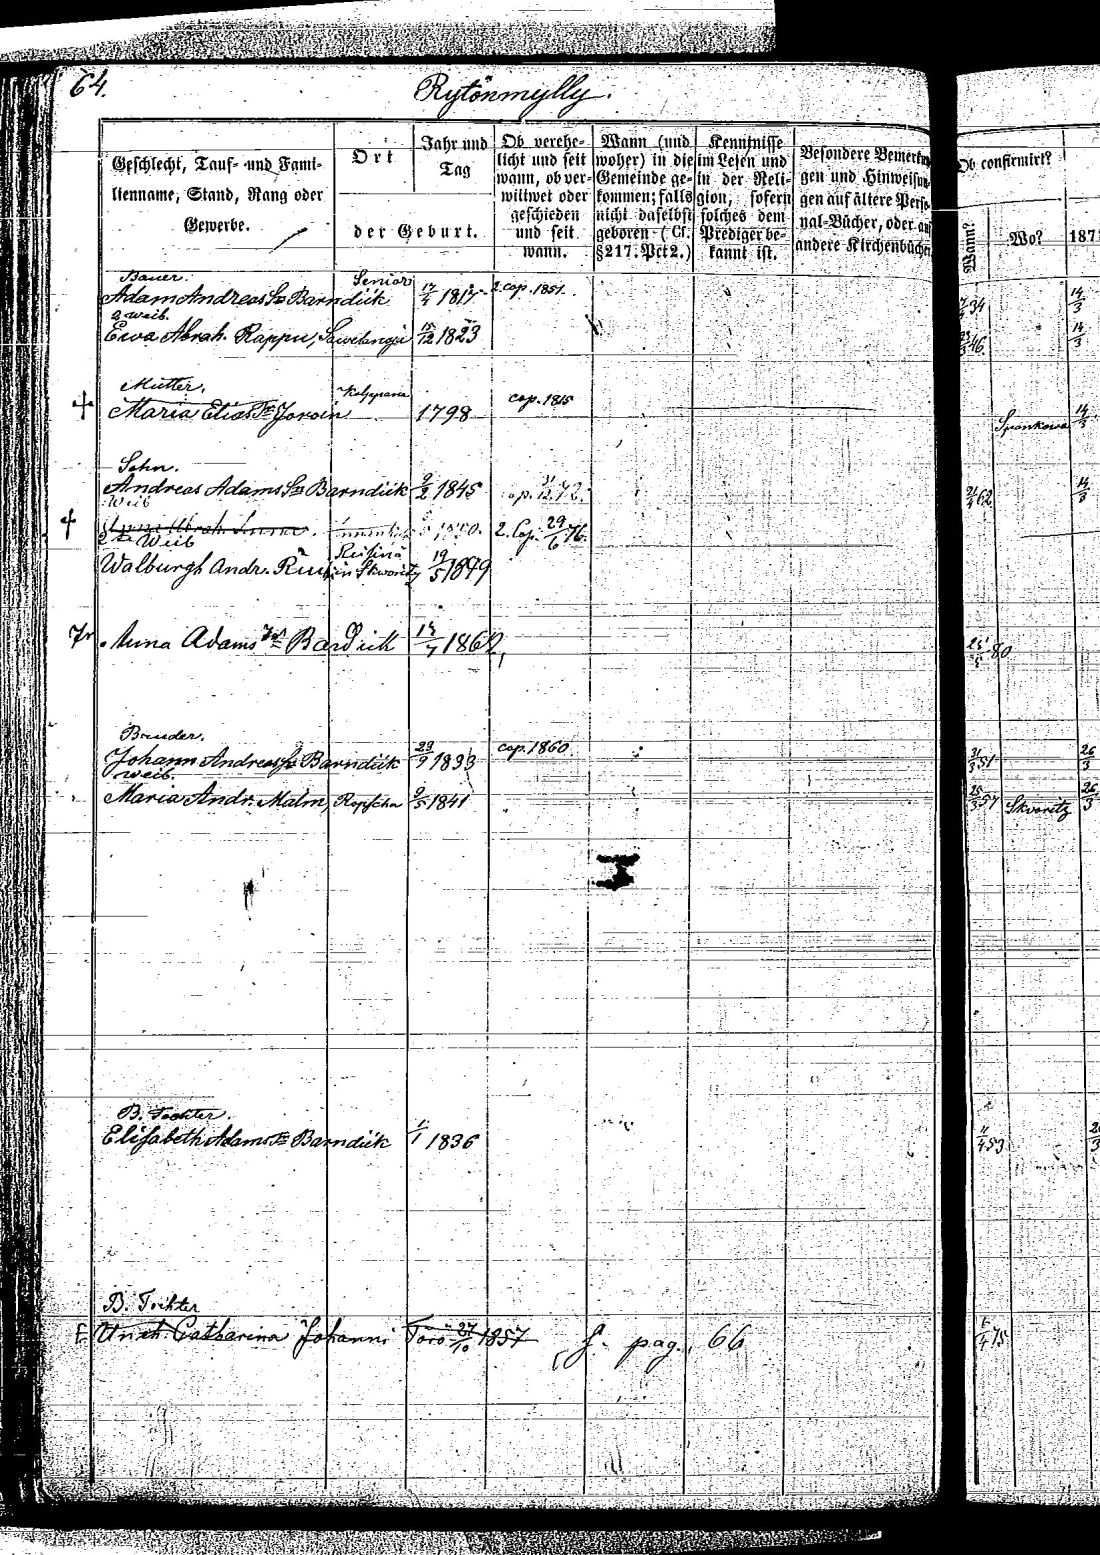 64.
Rytönmylly.
Geschlecht, Tauf- und Fami-
lienname, Stand, Rang oder
Gewerbe.
Ort
der Geburt.
Jahr und
Tag
Ob verehe-
licht und seit
wann, ob ver-
wittwet oder
geschieden
und seit
wann.
Wann (und
woher) in die
Gemeinde ge-
kommen; falls
nicht daselbst
geboren (Cf.
§ 217. Pct 2.)
Kenntnisse
im Lesen und
in der Reli-
gion, sofern
solches dem
Prediger be-
kannt ist.
Besondere Bemerkun
gen und Hinweisun
gen auf ältere Perso
nal-Bücher, oder au
andere Kirchenbüche
Ob confirmirt?
Wann?
Wo?
187
Bauer. Senior
Adam Andreas Sn Barndük 17/4 1817 2. cop. 1851. 34 14/3
2 Weib.
Ewa Abrah. Rappu, 15/12 1823 46. 14/3
Mutter.
Maria Elias Tr 1798 cop. 1815 14/3
Sohn.
Andreas Adams Sn Barndük 9/2 1845 62 14/3
Weib
2. Cop. 29/6 76.
2te Weib
Walburgh Andr. 19/5 18
Anna Adams Tr Bardük 1862, 80
Bruder.
Johann Andreas Sn Barndük 29/9 1833 cop. 1860 31/3 51 26/3
Weib.
Maria Andr. Malm, Ropscha 9/5 1841 25/3 57 Skworitz 26/3
B. Tochter.
Elisabeth Adams Tr Barndük 1836 53
B. Tochter
Catharina Johanni Toro 27/10 1857 f. pag. 66 75